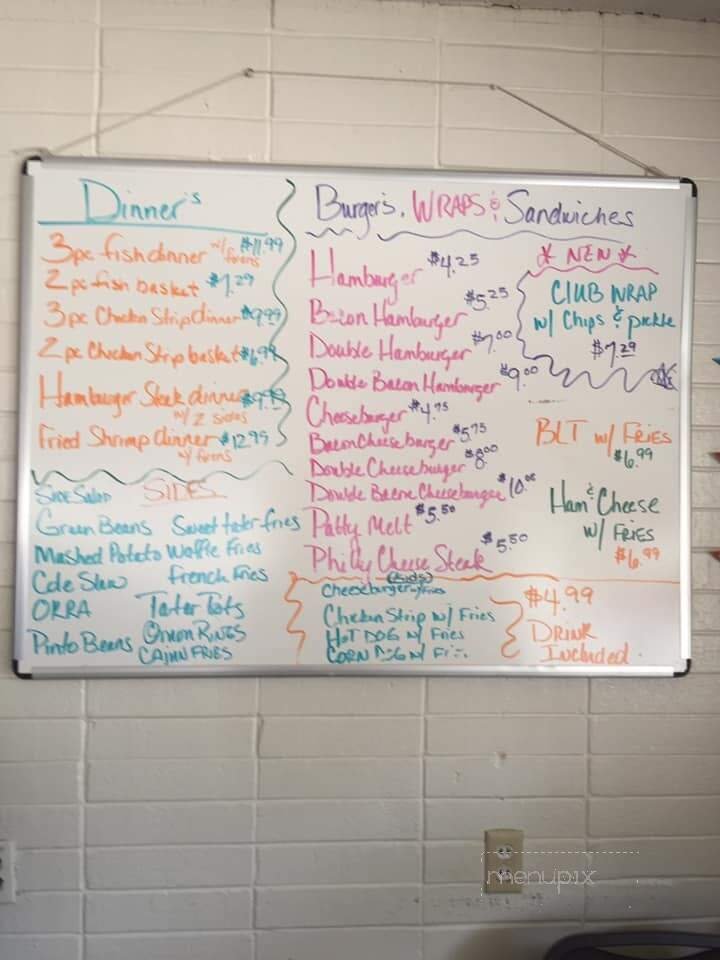 Dinner's
3pc fish dinner w/ fixens $11.99
2 pc fish basket $7.29
3pc Chicken Strip dinner $9.99
2 pc Chicken Strip basket $6.99
Hamburger Steak dinner $9.99
w/ 2 sides
Fried Shrimp dinner $12.95
w/ fixens
SIDES
Side Salad
Green Beans Sweet tater fries
Mashed Potato Waffle Fries
Cole Slaw French Fries
OKRA Tater Tots
Pinto Beans Onion RINGS
CAJUN FRIES
Burger's, WRAPS & Sandwiches
Hamburger $4.25
Bacon Hamburger $5.25
Double Hamburger $7.00
Double Bacon Hamburger $9.00
Cheeseburger $4.75
Bacon Cheeseburger $5.75
Double Cheeseburger $8.00
Double Bacone Cheeseburger $10.00
Patty Melt $5.50
Philly Cheese Steak $5.50
* NEW *
CLUB WRAP
w/ Chips & pickle
$7.29
BLT w/ FRIES
$6.99
Ham & Cheese
w/ FRIES
$6.99
(Kids)
Cheeseburger w/ Fries
Chicken Strip w/ Fries
HOT DOG w/ Fries
CORN DOG w/ Fri
$4.99
DRINK
Included
menupix